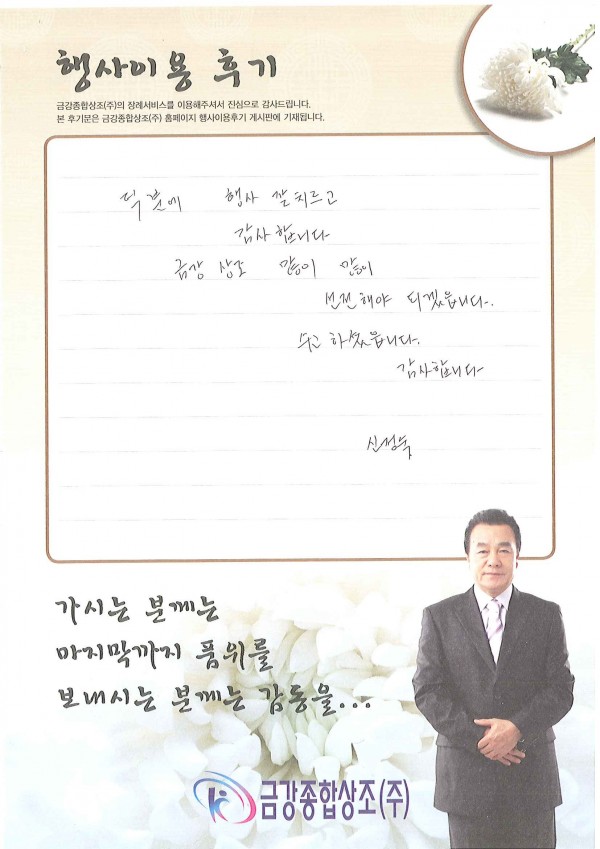 행사이용 후기
금강종합상조(주)의 장례서비스를 이용해주셔서 진심으로 감사드립니다.
본 후기분은 금강종합상조(주) 홈페이지 행사이용후기 게시판에 기재됩니다.
덕분에 행사 잘 치르고
감사합니다
금강 상조 많이 많이
선전해야 되겠읍니다.
수고 하셨읍니다.
감사합니다
신정숙
가시는 분께는
마지막까지 품위를
보내시는 분께는 감동을...
금강종합상조(주)